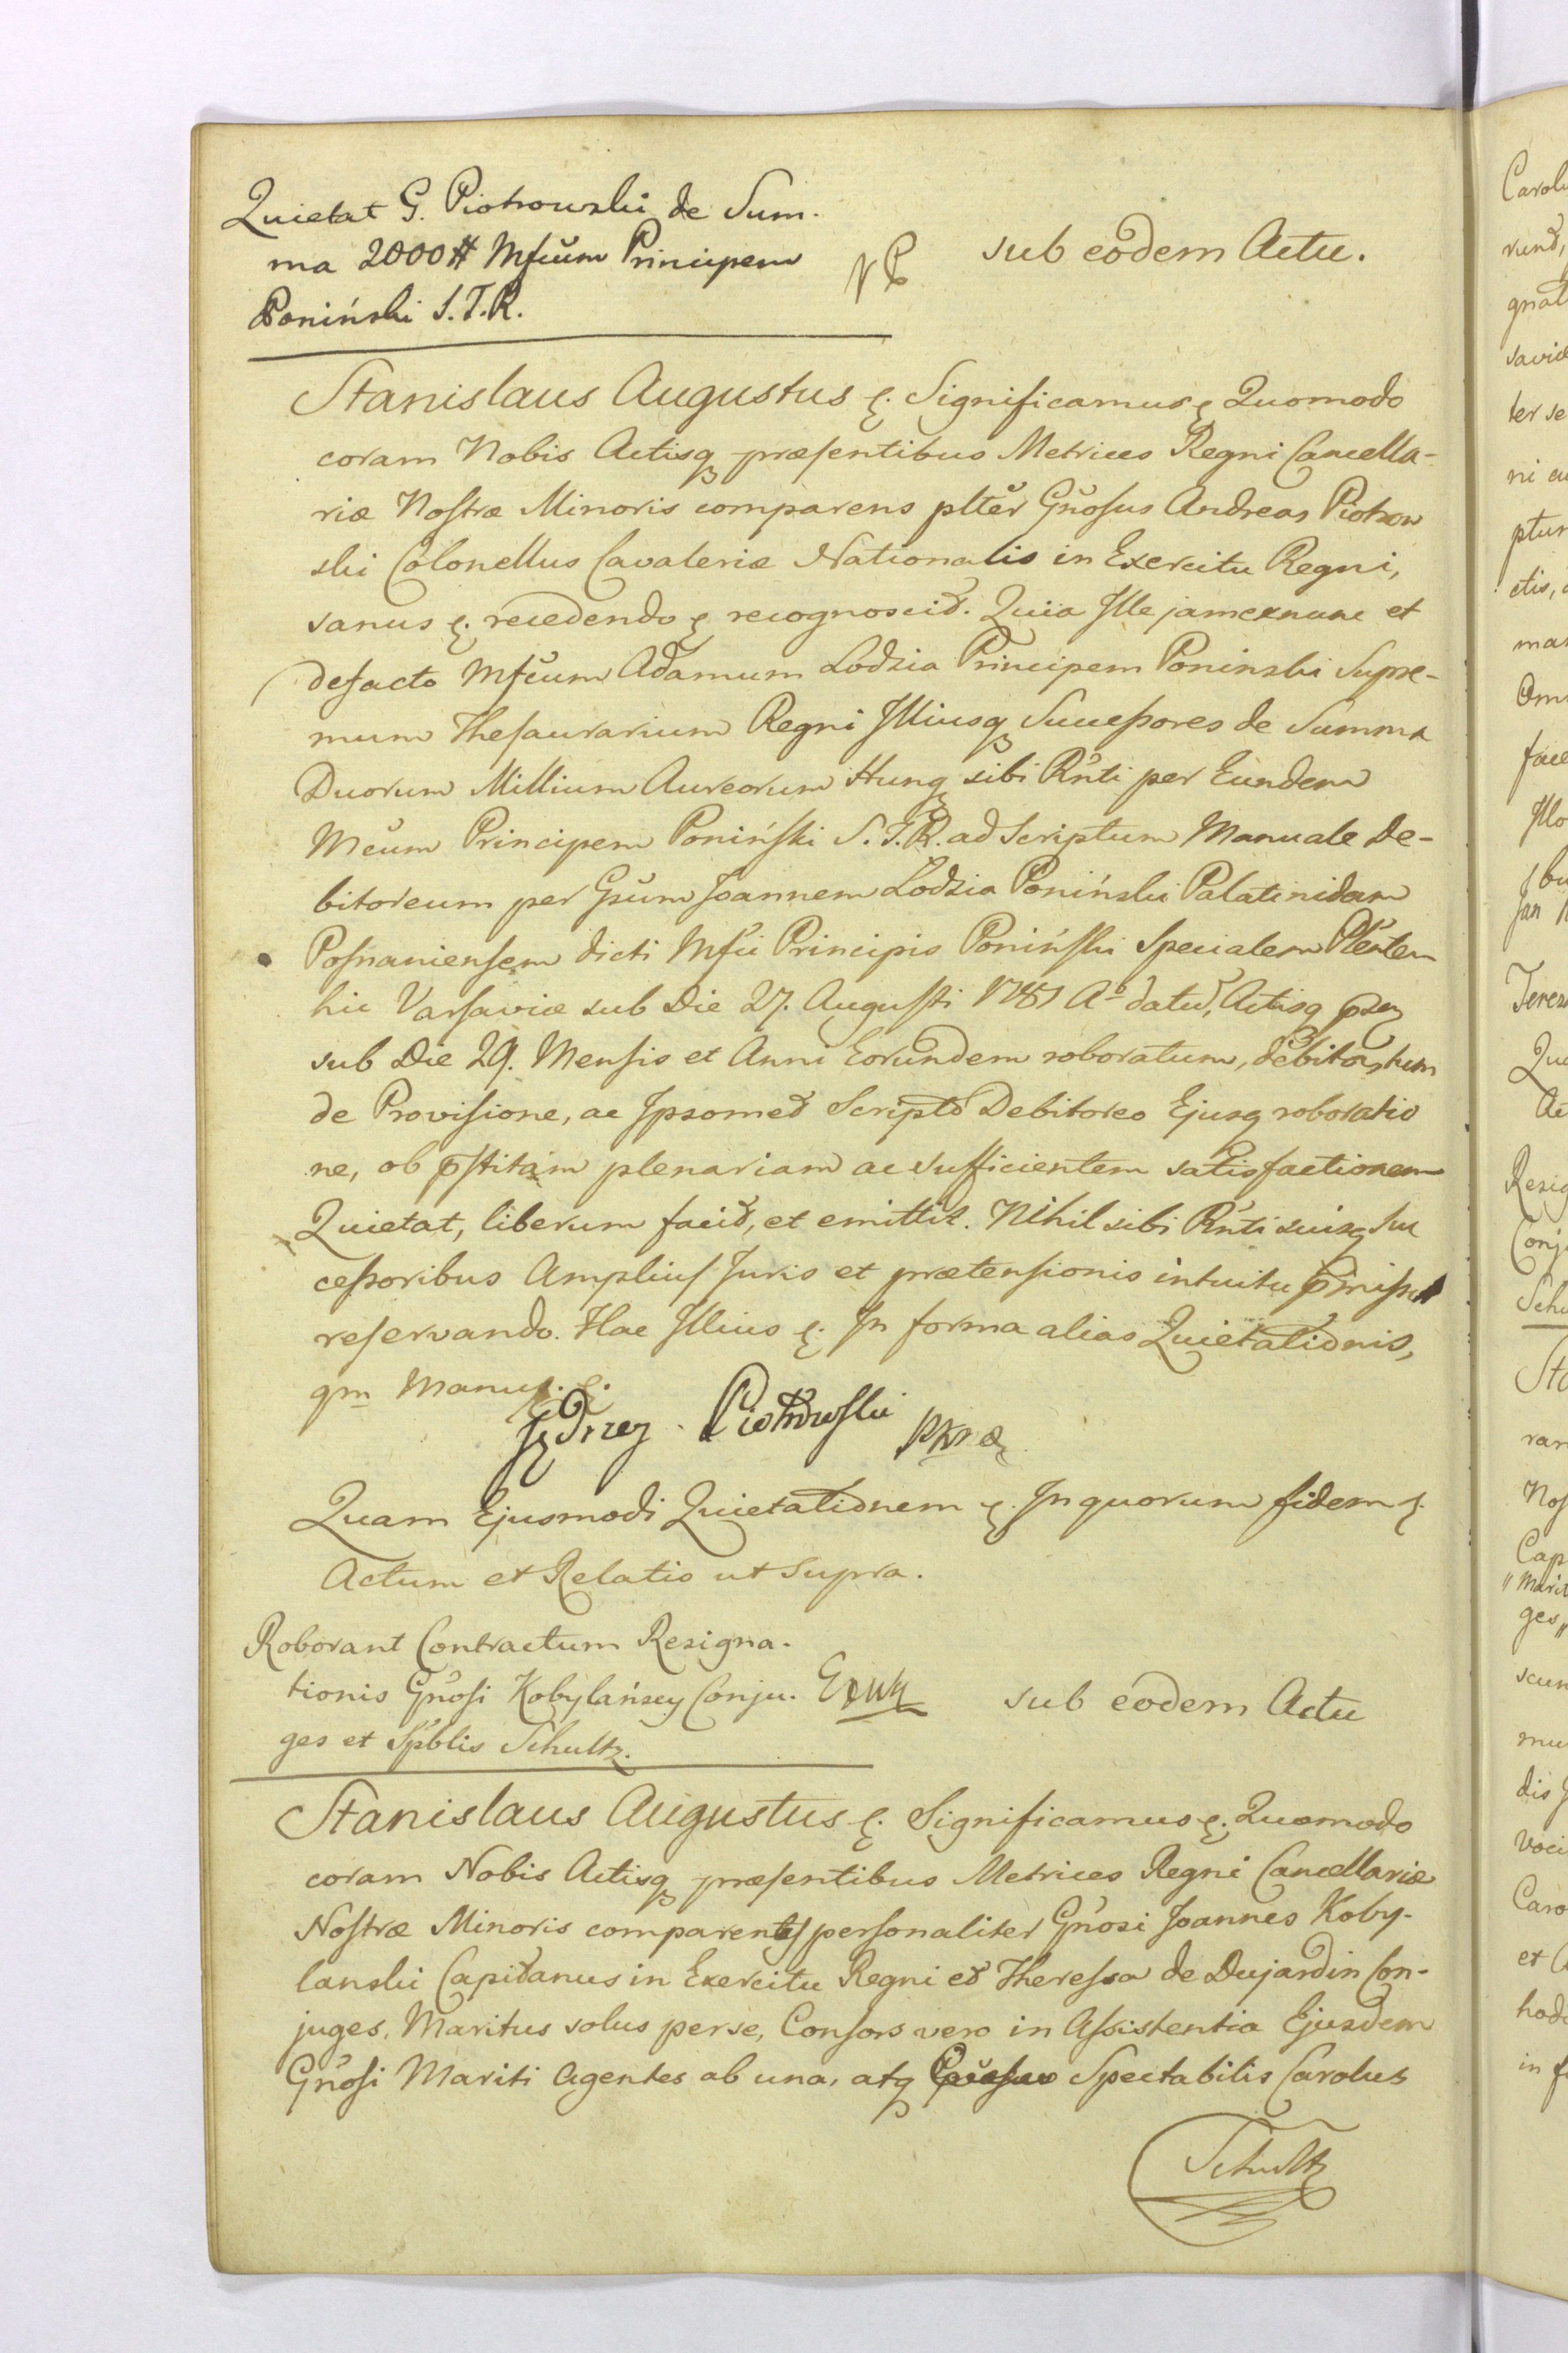 Quietat G. Piotrowski de Sum-
ma 2000 # Mfcum Principem
Poniński S.T.R.
sub eodem Actu.
Stanislaus Augustus &. Significamus & Quomodo
coram Nobis Actisq præsentibus Metrices Regni Cancella-
riæ Nostræ Minoris comparens plter Gnosus Andreas Piotrow
ski Colonellus Cavaleriæ Nationalis in Exercitu Regni,
sanus &. recedendo & recognoscit. Quia Ille jamexnunc et
defacto Mfcum Adamum Lodzia Principem Poninski Supre-
mum Thesaurarium Regni Illiusq Successores de Summa
Duorum Millium Aureorum Hung sibi Rnti per Eundem
Mcum Principem Poniński S.T.R. ad Scriptum Manuale De-
bitoreum per Gsum Joannem Lodzia Poniński Palatinidam
Posnaniensem dicti Mfci Principis Poniński Specialem Plentem
hic Varsaviæ sub Die 27. Augusti 1781 Aº datud, Actisq psq
sub Die 29. Mensis et Anni Eorundem roboratum, debita, tum
de Provisione, ac Ipsomet Scripto Debitoreo Ejusq roboratio
ne, ob pstitam plenariam ac sufficientem satisfactionem
Quietat, liberum facit, et emittit. Nihil sibi Rnti suisq Suc
cessoribus Amplius Juris et prætensionis intuitu pmissor
reservando. Hac Illius &. In forma alias Quietationis,
qm Manu &.
Jędrzey Piotrowski
Quam Ejusmodi Quietationem &. In quorum fidem &.
Actum et Relatio ut Supra.
Roborant Contractum Resigna-
tionis Gnosi Kobylańscy Conju-
ges et Spblis Schultz.
sub eodem Actu
Stanislaus Augustus &. Significamus &. Quomodo
coram Nobis Actisq præsentibus Metrices Regni Cancellariæ
Nostræ Minoris comparentes personaliter Gnosi Joannes Koby-
lanski Capitanus in Exercitu Regni et Theressa de Dujardin Con-
juges, Maritus solus per se, Consors vero in Assistentia Ejusdem
Gnosi Mariti Agentes ab una, atq Spectabilis Carolus
Schultz